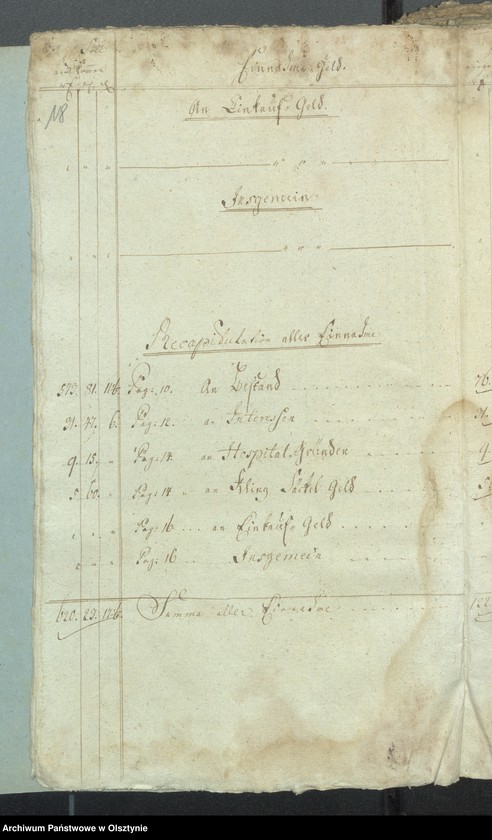 Soll
Einnahme Geld.
18
An Einkauf-Geld.
" " "
Insgemein.
" " "
Recapitulation aller Einnahme
573. 81. Pag: 10. An Bestand
31. 47. 6. Pag: 12. an Interessen
9. 15. " Pag: 14. an Hospital-Gründen
5. 60. " Pag: 14 " an Kling Säckel Geld
" " " Pag: 16 an Einkauf-Geld
" " " Pag: 16 Insgemein
620. 23. Summa aller Einnahme
Archiwum Państwowe w Olsztynie